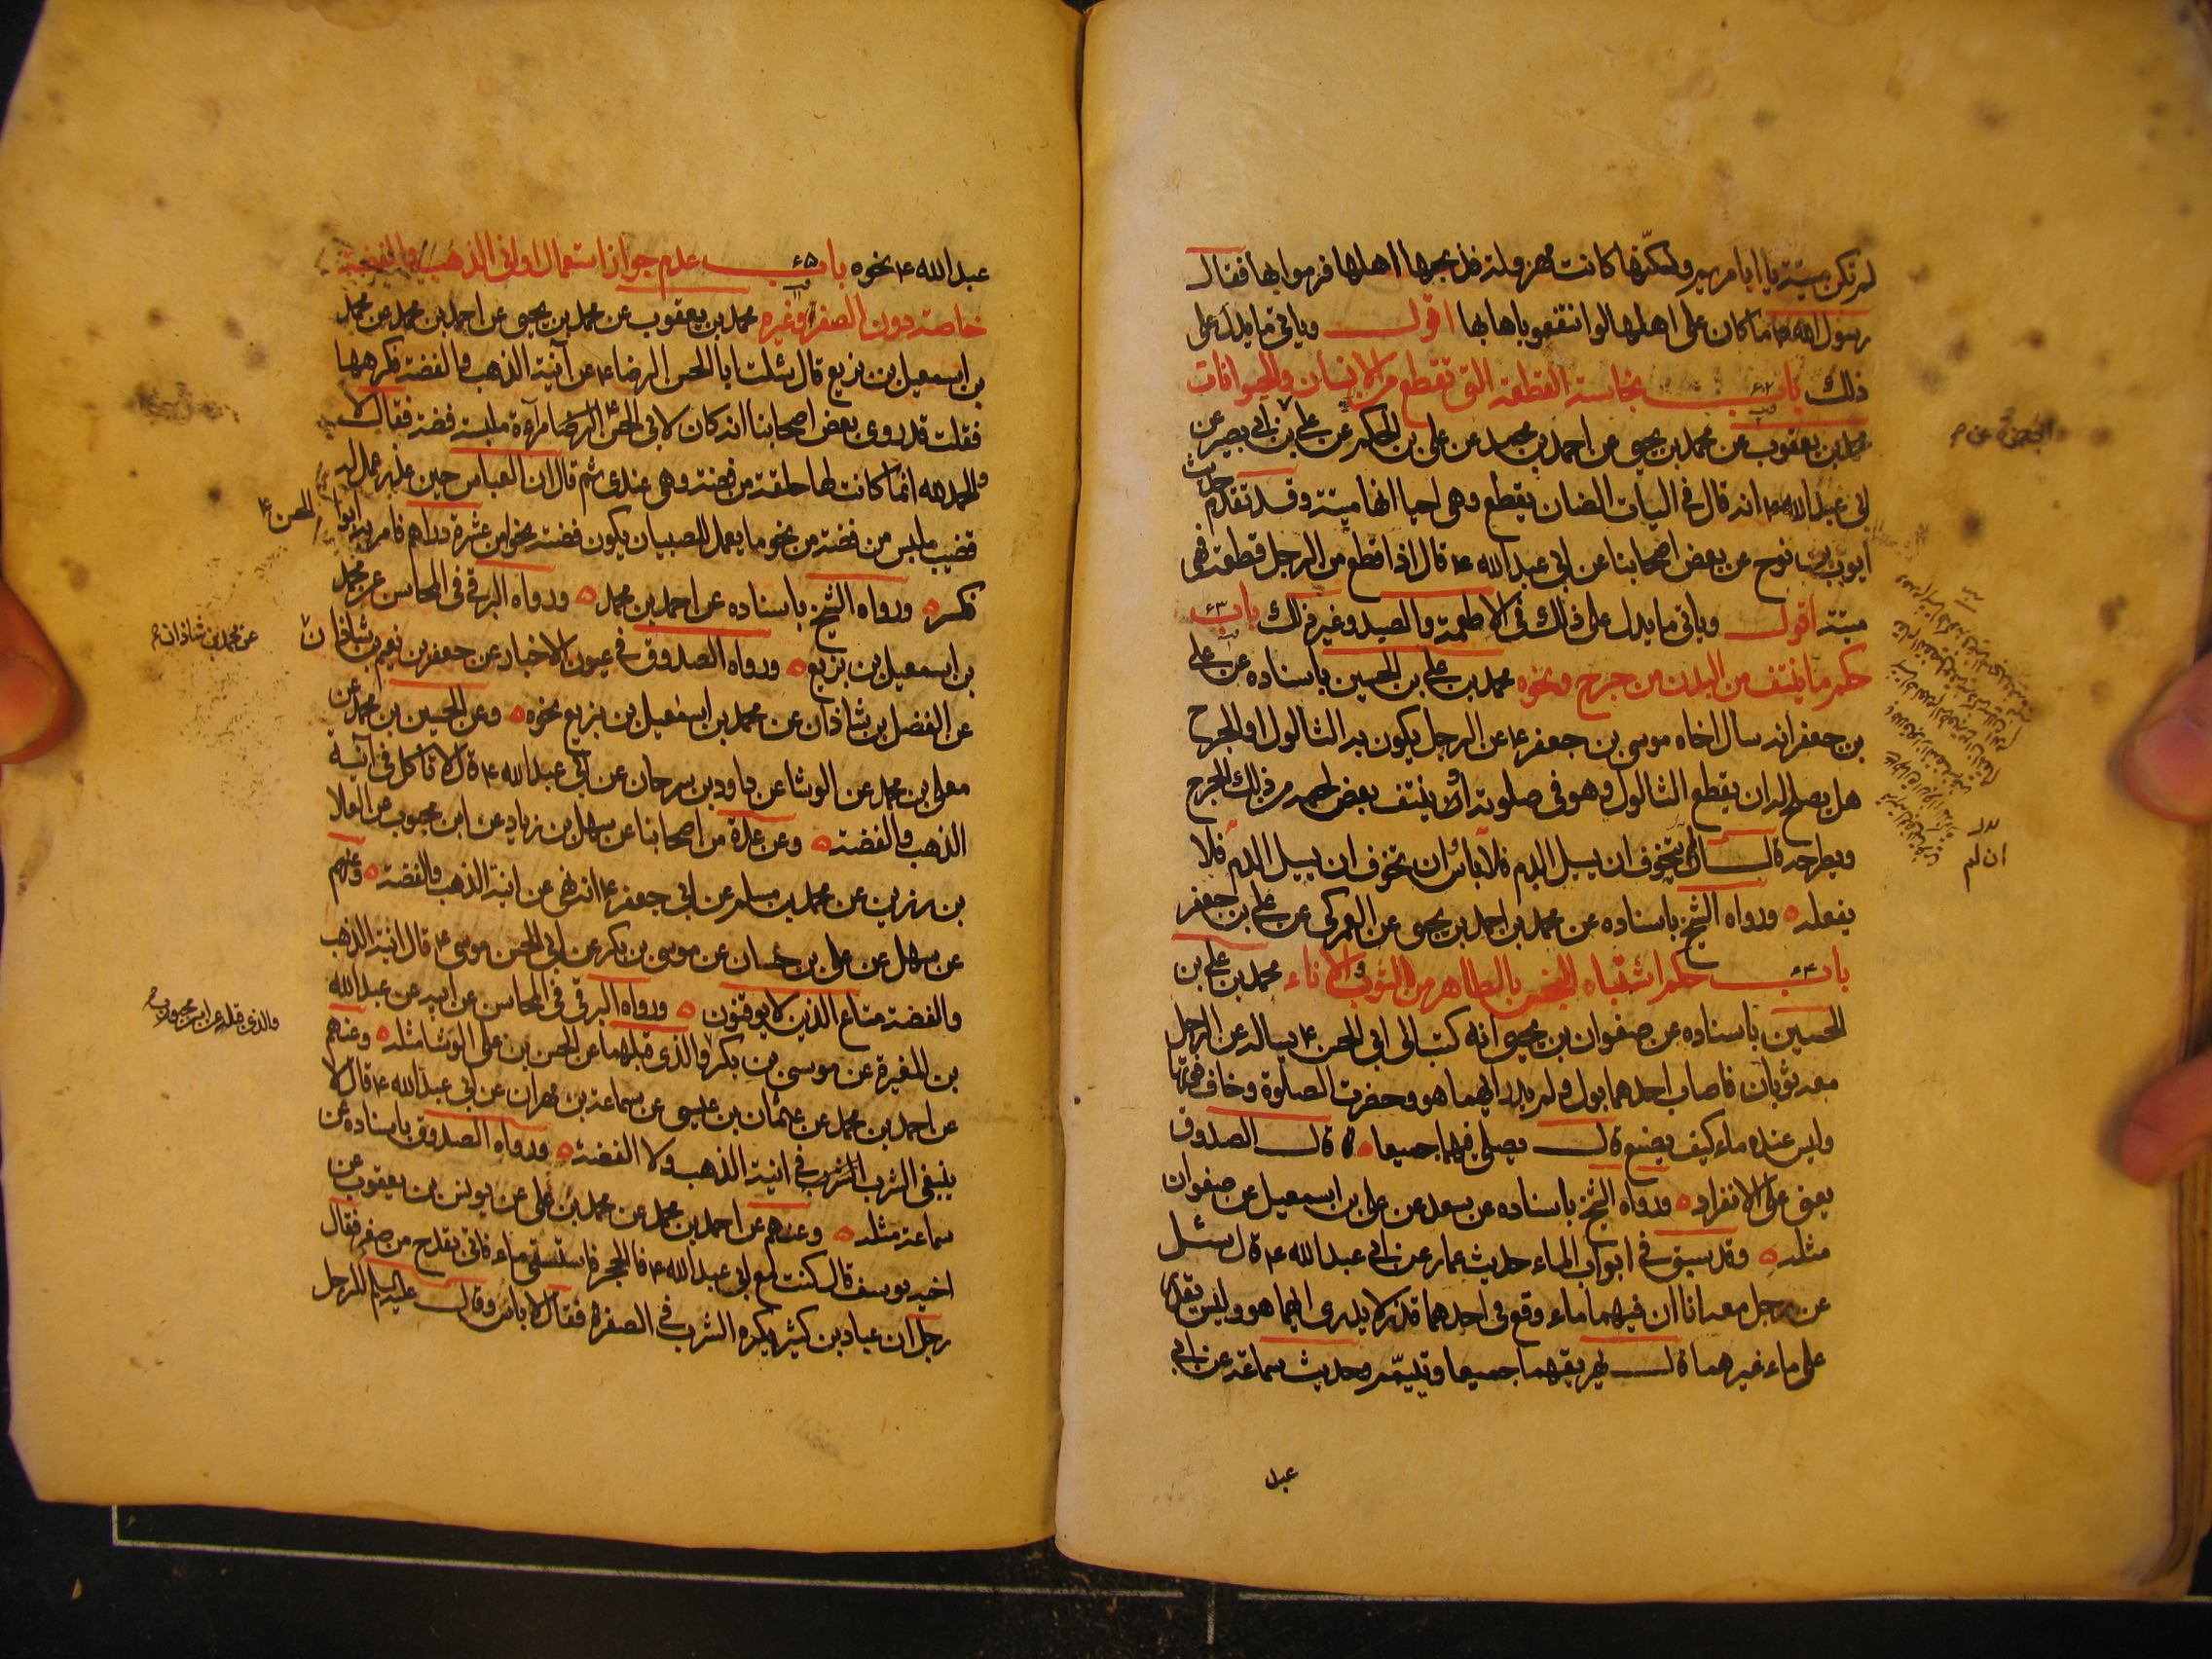 لم تكن ميتة يا ابا مريم ولكنها كانت مهزولة فذبحها اهلها فرموا بها فقال
رسول الله ص ما كان على اهلها لو انتفعوا باهابها اقول وياتي ما يدل على
ذلك باب ٦٢ نجاسة القطعة التي تقطع من الانسان والحيوانات
محمد بن يعقوب عن محمد بن يحيى عن احمد بن محمد عن على بن الحكم عن على بن ابي بصير عن
ابي عبد الله ع انه قال في اليات الضان يقطع وهى احيا انها ميتة وقد تقدم حديث
ايوب بن نوح عن بعض اصحابنا عن ابي عبد الله ع قال اذا قطع من الرجل قطعة فهى
ميتة اقول وياتي ما يدل على ذلك في الاطعمة والصيد وغير ذلك باب ٦٣
حكم ما ينتف من البدن من جرح ونحوه محمد بن على بن الحسين باسناده عن على
بن جعفر انه سال اخاه موسى بن جعفر ع عن الرجل يكون به الثالول او الجرح
هل يصلح له ان يقطع الثالول وهو في صلوته او ينتف بعض لحمه من ذلك الجرح
ويطرحه قال ان لم يتخوف ان يسيل الدم فلا باس وان تخوف ان يسيل الدم فلا
يفعله ورواه الشيخ باسناده عن محمد بن احمد بن يحيى عن العمركى عن على بن جعفر
باب ٦٤ حكم اشتباه النجس بالطاهر من الثوب والاناء محمد بن على بن
الحسين باسناده عن صفوان بن يحيى انه كتب الى ابي الحسن ع يساله عن الرجل
معه ثوبان فاصاب احدهما بول ولم يدر ايهما هو وحضرت الصلوة وخاف فوتها
وليس عنده ماء كيف يصنع قال يصلى فيهما جميعا قال الصدوق
يعنى على الانفراد ورواه الشيخ باسناده عن سعد عن على بن اسمعيل عن صفوان
مثله وقد سبق في ابواب الماء حديث عمار عن ابي عبد الله ع قال سئل
عن رجل معه اناان فيهما ماء وقع في احدهما قذر لا يدرى ايهما هو وليس يقدر
على ماء غيرهما قال يهريقهما جميعا ويتيمم وحديث سماعة عن ابي
عبد
ان لم
عبد الله ع نحوه باب ٦٥ عدم جواز استعمال اوانى الذهب والفضة
خاصة دون الصفر وغيره محمد بن يعقوب عن محمد بن يحيى عن احمد بن محمد عن محمد
بن اسمعيل بن بزيع قال سئلت ابا الحسن الرضا ع عن آنية الذهب والفضة فكرهها
فقلت قد روى بعض اصحابنا انه كان لابي الحسن الرضا مرآة ملبسة فضة فقال لا
والحمد لله انما كانت لها حلقة من فضة وهى عندى ثم قال ان العباس حين عذر عمل له
قضيب ملبس من فضة من نحو ما يعمل للصبيان يكون فضة نحوا من عشرة دراهم فامر به ابو الحسن ع
فكسر ورواه الشيخ باسناده عن احمد بن محمد ورواه البرقى في المحاسن عن محمد
بن اسمعيل بن بزيع ورواه الصدوق في عيون الاخبار عن جعفر بن نعيم بن شاذان
عن محمد بن شاذان
عن الفضل بن شاذان عن محمد بن اسمعيل بن بزيع نحوه وعن الحسين بن محمد عن
معلى بن محمد عن الوشا عن داود بن سرحان عن ابي عبد الله ع قال لا تاكل في آنية
الذهب والفضة وعن عدة من اصحابنا عن سهل بن زياد عن ابن محبوب عن العلا
بن رزين عن محمد بن مسلم عن ابي جعفر ع انه نهى عن انية الذهب والفضة وعنهم
عن سهل عن على بن حسان عن موسى بن بكر عن ابي الحسن موسى ع قال انية الذهب
والفضة متاع الذين لا يوقنون ورواه البرقى في المحاسن عن ابيه عن عبد الله
بن المغيرة عن موسى بن بكر والذى قبلهما عن الحسن بن على الوشا مثله وعنهم
والذى قبله عن ابن محبوب
عن احمد بن محمد عن عثمان بن عيسى عن سماعة بن مهران عن ابي عبد الله ع قال لا
ينبغى الشرب في انية الذهب ولا الفضة ورواه الصدوق باسناده عن
سماعة مثله وعنهم عن احمد بن محمد عن محمد بن على عن يونس بن يعقوب عن
اخيه يوسف قال كنت مع ابي عبد الله ع في الحجر فاستسقى ماء فاتى بقدح من صفر فقال
رجل ان عباد بن كثير يكره الشرب في الصفر فقال لا باس وقال عليه السلام للرجل